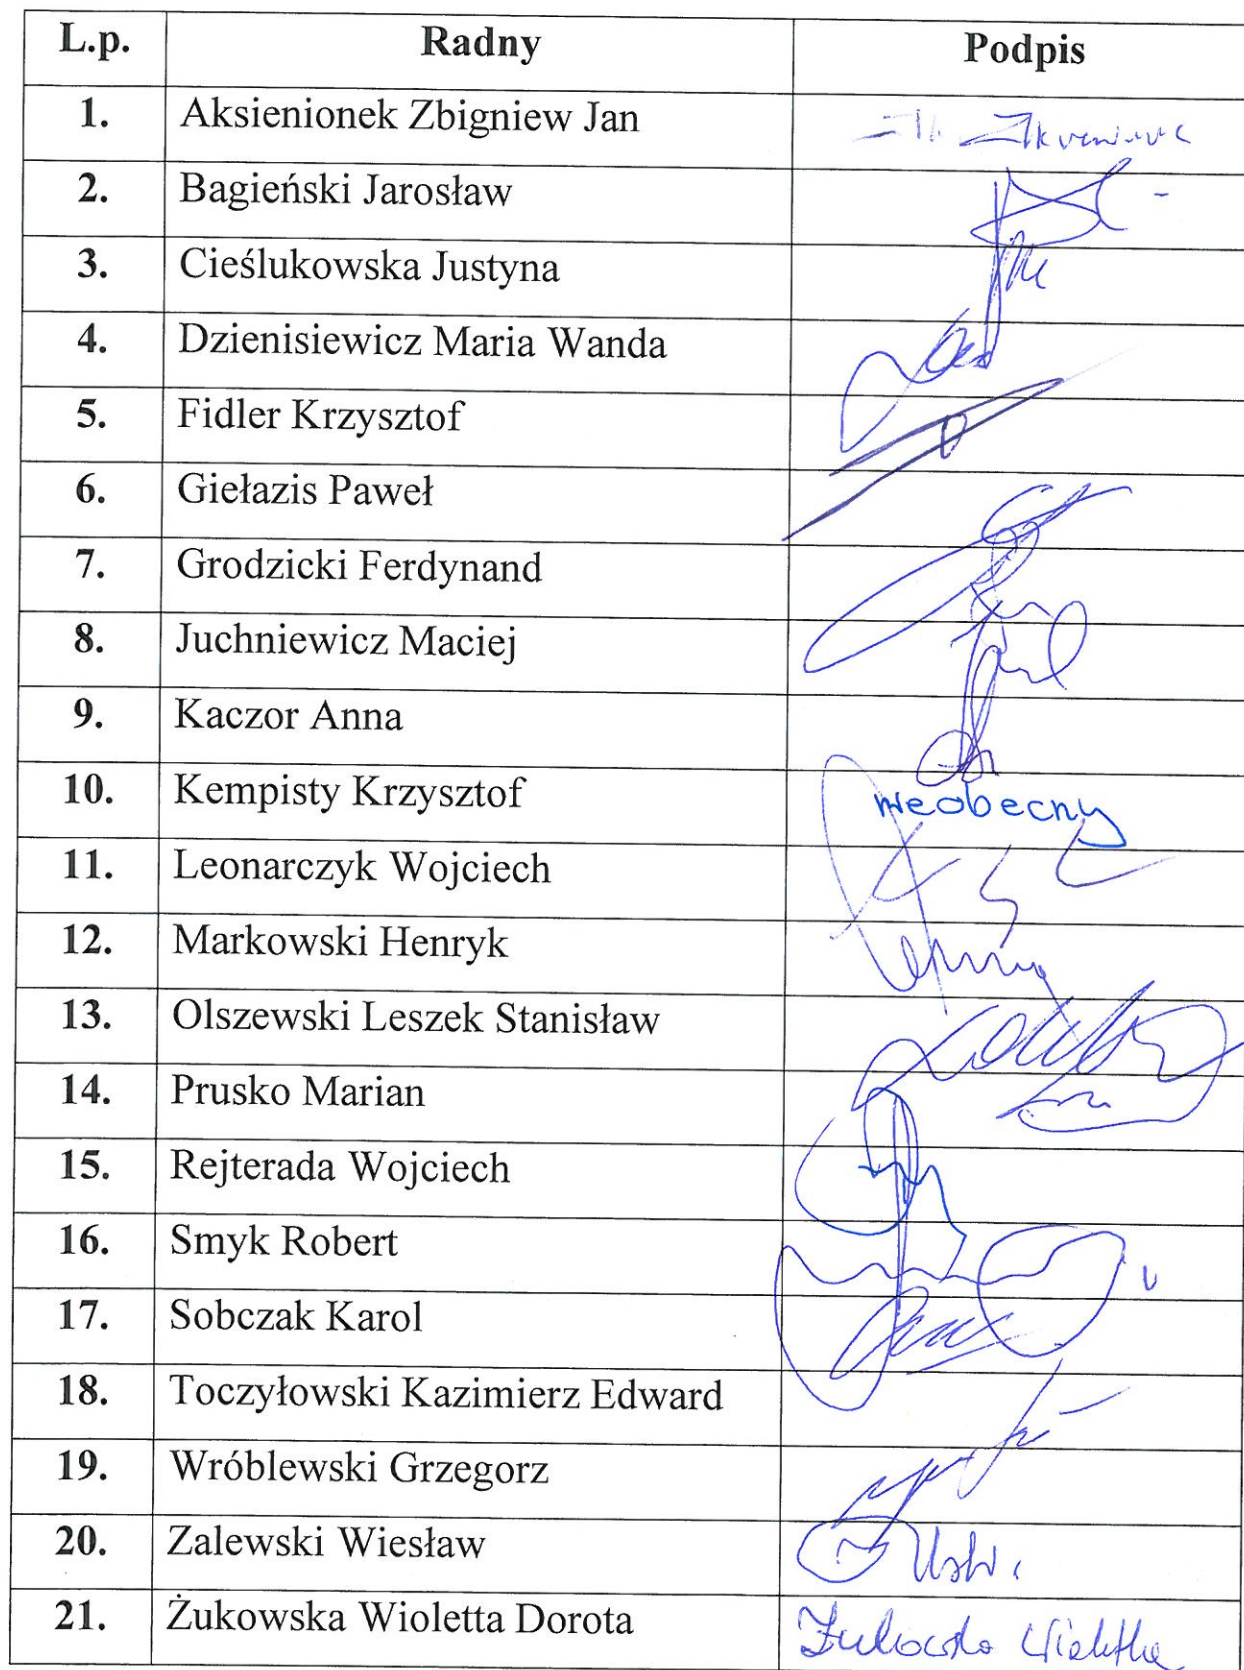 L.p. Radny Podpis
1. Aksienionek Zbigniew Jan
2. Bagieński Jarosław
3. Cieślukowska Justyna
4. Dzienisiewicz Maria Wanda
5. Fidler Krzysztof
6. Giełazis Paweł
7. Grodzicki Ferdynand
8. Juchniewicz Maciej
9. Kaczor Anna
10. Kempisty Krzysztof nieobecny
11. Leonarczyk Wojciech
12. Markowski Henryk
13. Olszewski Leszek Stanisław
14. Prusko Marian
15. Rejterada Wojciech
16. Smyk Robert
17. Sobczak Karol
18. Toczyłowski Kazimierz Edward
19. Wróblewski Grzegorz
20. Zalewski Wiesław
21. Żukowska Wioletta Dorota Żukowska Wioletta